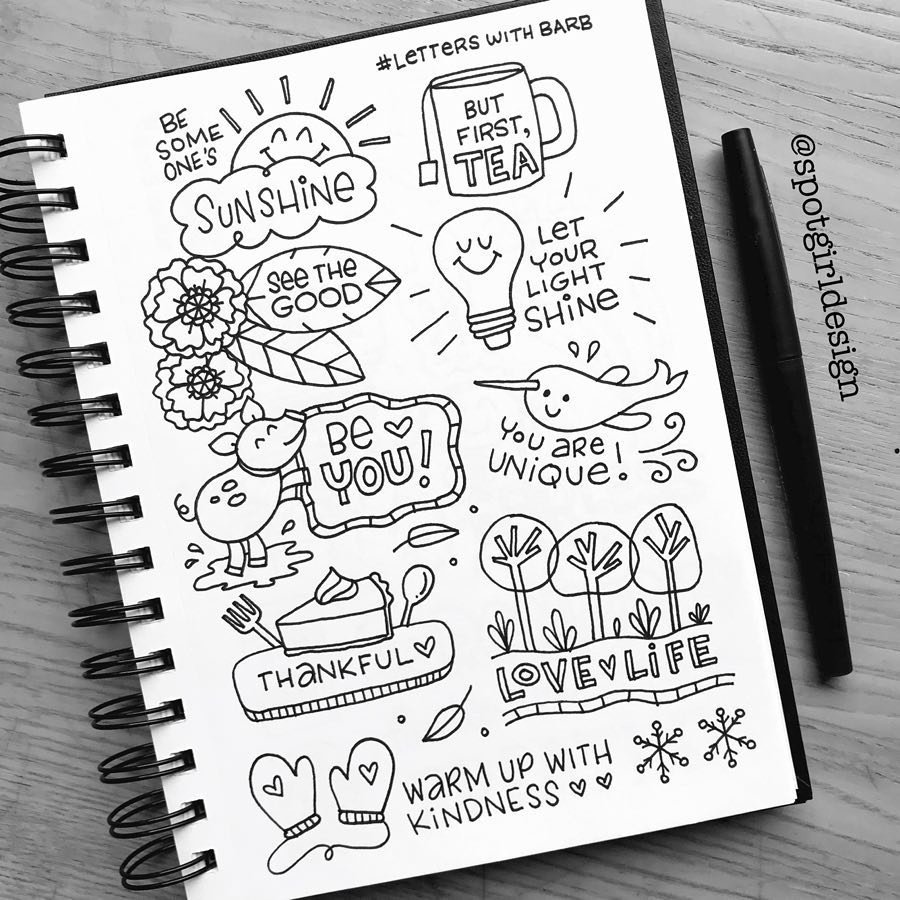 #LETTERS WITH BARB
BE
SOME
ONE'S
SUNSHiNe
BUT
FIRST,
TEA
See THe
GOOD
LeT
YOUR
LIGHT
SHiNe
Be ♡
YOU!
YOU aRe
UNiQUe!
THaNKFUL♡
LOVE♡LiFE
WaRM UP WITH
KiNDNESS ♡ ♡
@spotgirldesign